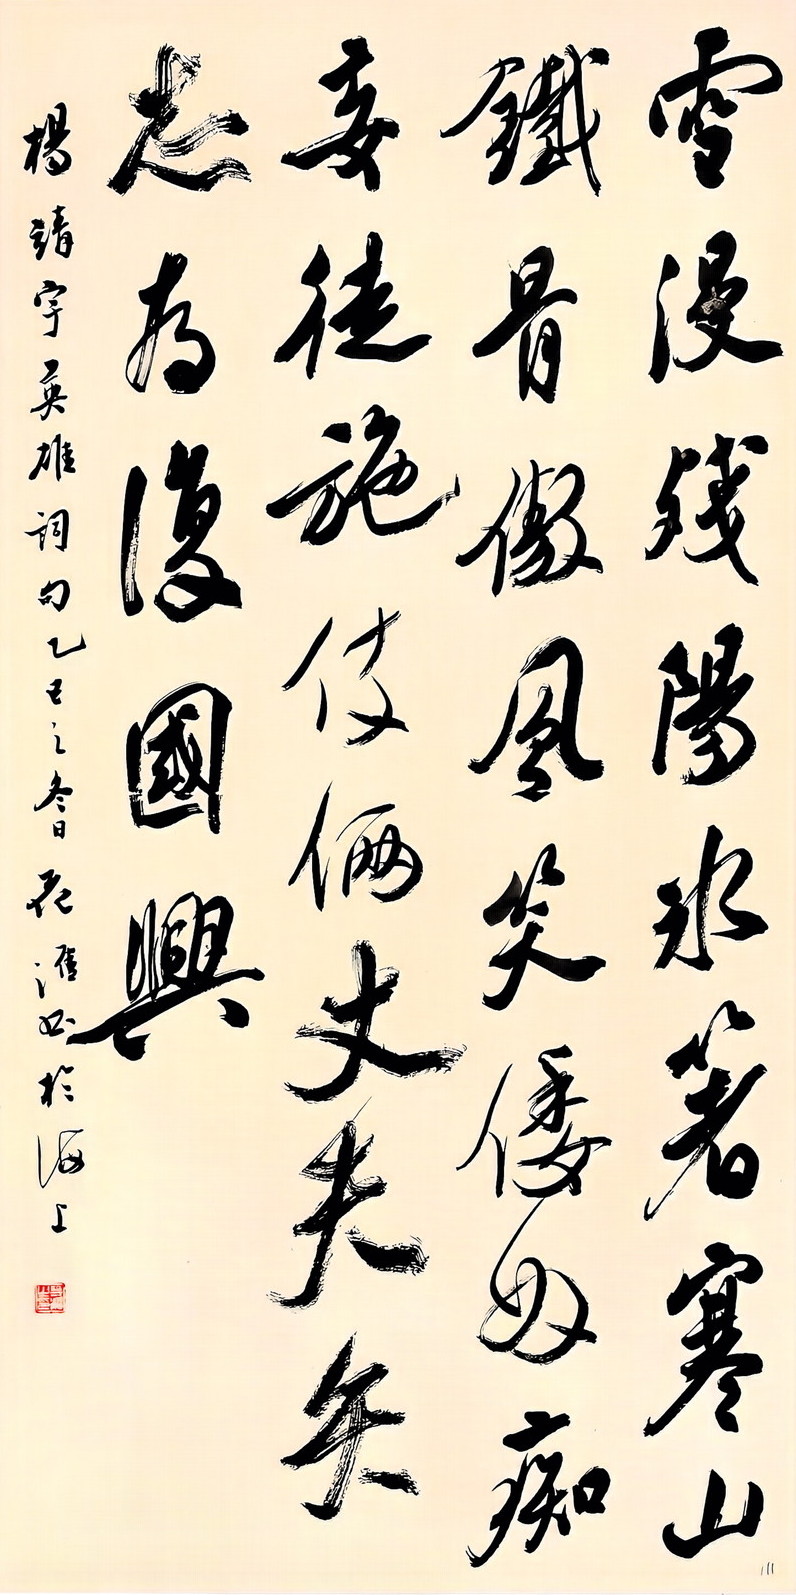 雪漫殘陽冰箸寒山
鐵骨傲風笑倭奴痴
妄徒施伎倆丈夫矢
志為復國興
楊靖宇英雄詞句乙之冬日花書於海上